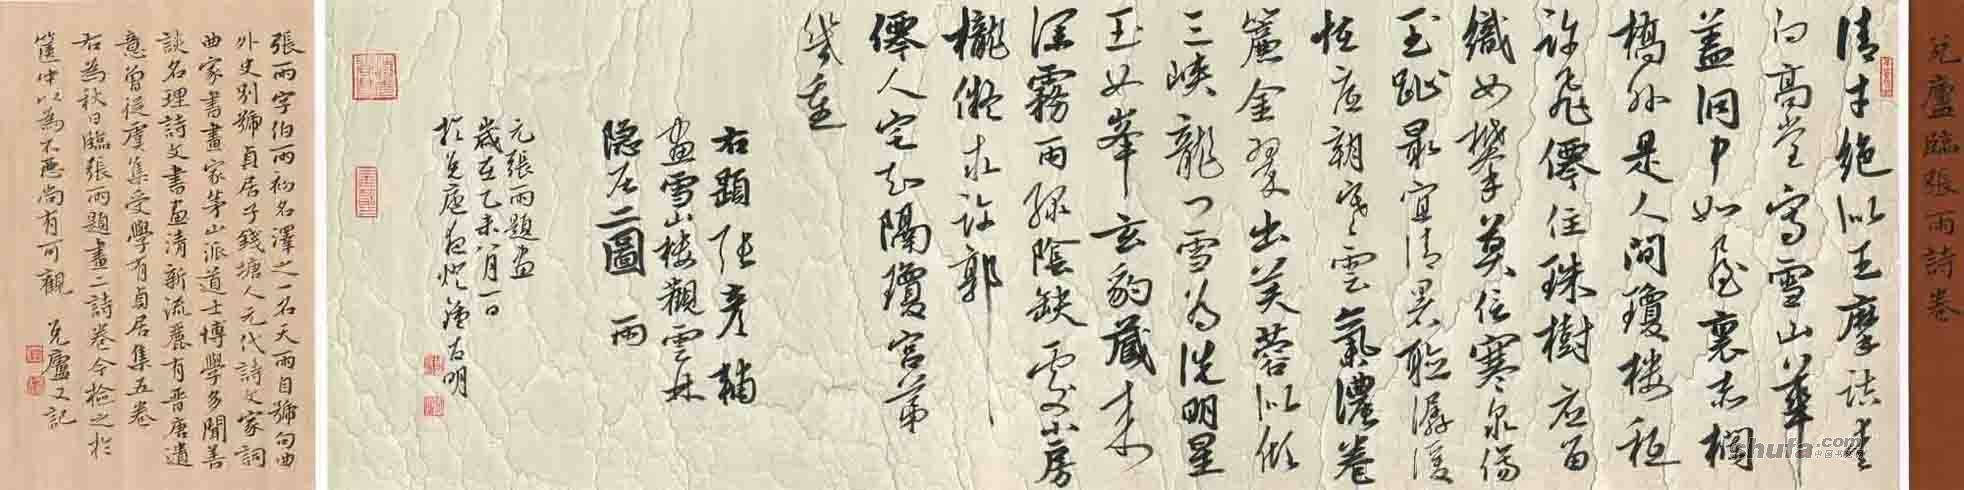 兌廬臨張雨詩卷
清才絕似王摩詰
白高堂寫雪山華
蓋洞中如屋裏赤欄
橋外是人間瓊樓秪
許飛僊住珠樹應留
織女攀莫信寒泉傷
玉趾最宜清
恆應朝雲氣濃卷
簾金翠出芙蓉似
三峽龍一雪為洗明星
玉女峯玄豹藏來
深霧雨綠陰缺處小房
櫳儗求許郭
僊人宅只隔瓊宮第
幾重
右題張彥輔
畫雪山樓觀雲林
隱居二圖 雨
元張雨題畫
歲在乙未八月一日
於兌廬
張雨字伯雨初名澤之一名天雨自號句曲
外史別號貞居子錢塘人元代詩文家詞
曲家書畫家茅山派道士博學多聞善
談名理詩文書畫清新流麗有晉唐遺
意曾從虞集受學有貞居集五卷
右為秋日臨張雨題畫二詩卷今檢之於
篋中以為不惡尚有可觀 兌廬又記
shufa.com